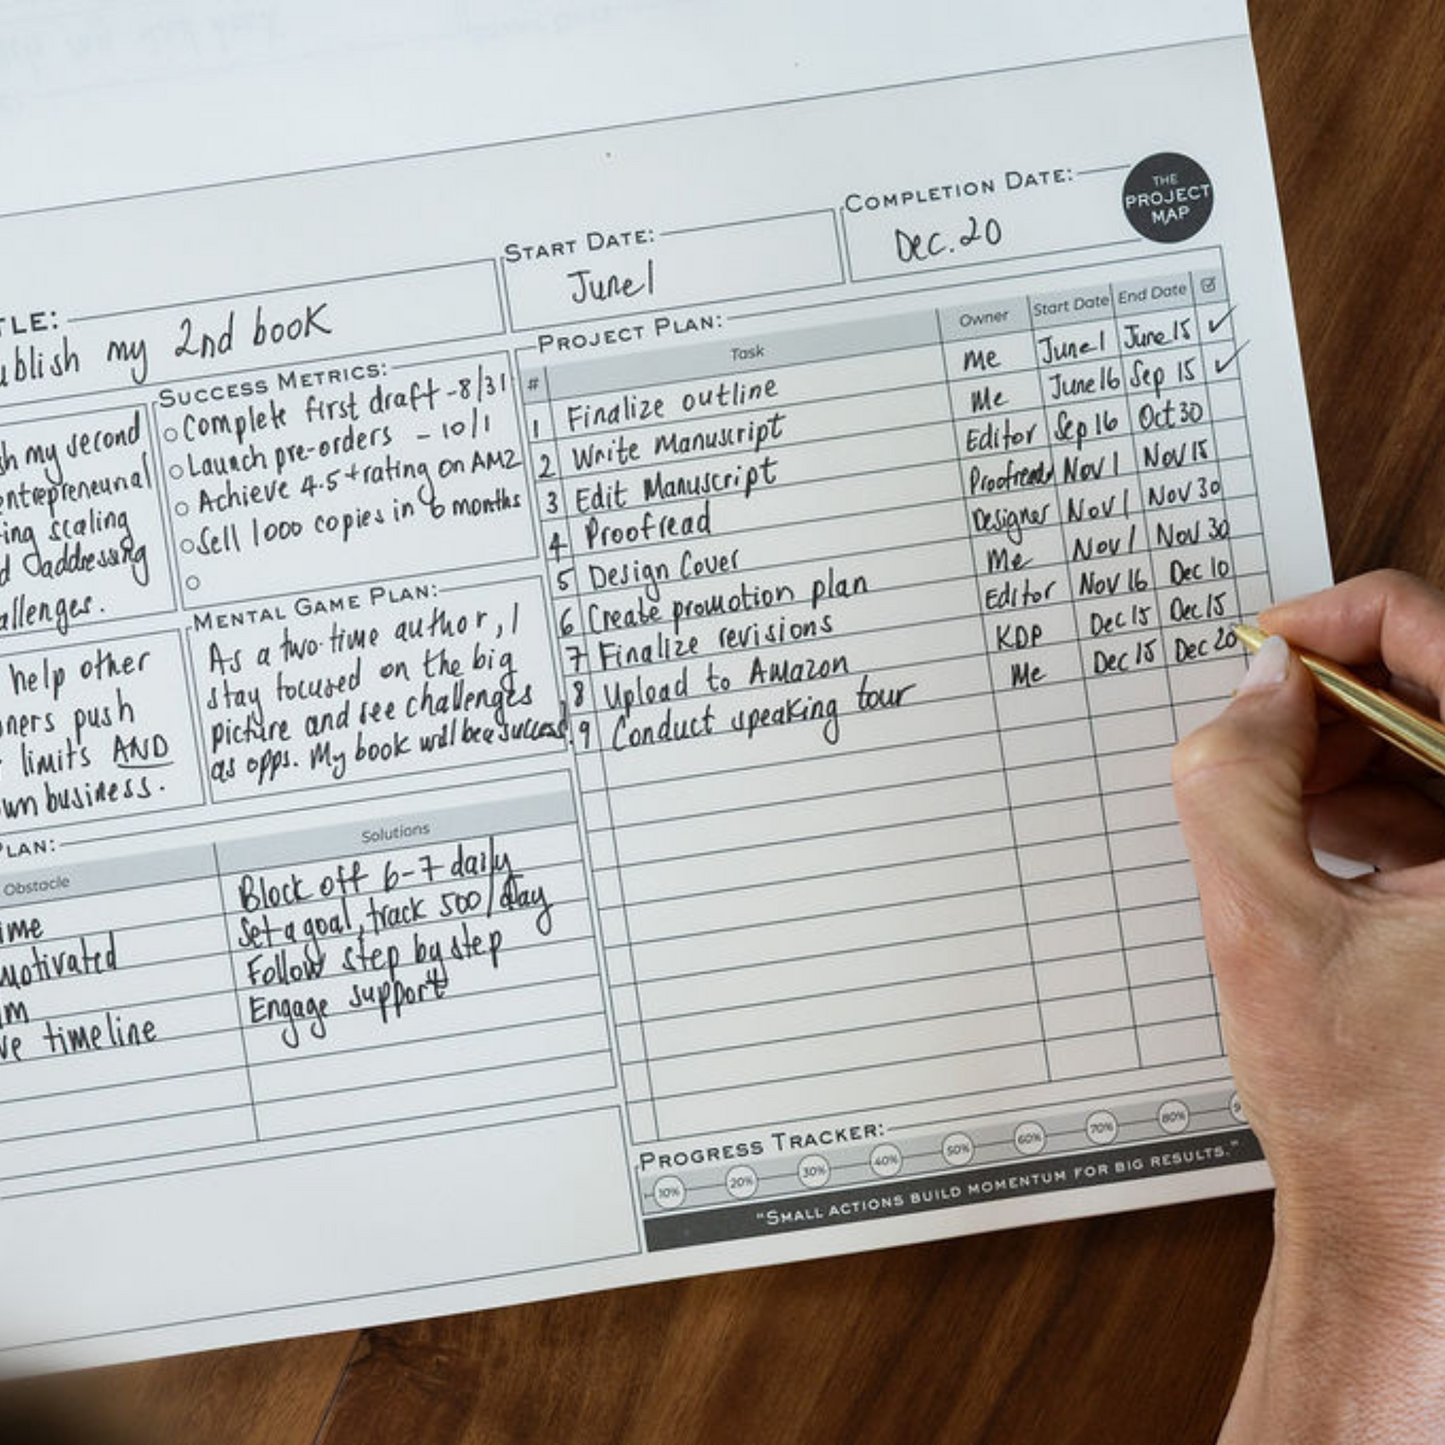 THE
PROJECT
MAP
COMPLETION DATE:
Dec. 20
START DATE:
June 1
TLE:
ublish my 2nd book
sh my second
entrepreneurial
ing scaling
d addressing
allenges.
SUCCESS METRICS:
Complete first draft - 8/31
Launch pre-orders - 10/1
Achieve 4.5+ rating on AMZ
Sell 1000 copies in 6 months
help other
ners push
limits AND
wn business.
MENTAL GAME PLAN:
As a two-time author, I
stay focused on the big
picture and see challenges
as opps. My book will be a success!
PLAN:
Obstacle Solutions
ime Block off 6-7 daily
motivated Set a goal, track 500/day
m Follow step by step
ve timeline Engage support
PROJECT PLAN:
# Task Owner Start Date End Date
1 Finalize outline Me June 1 June 15 ✓
2 Write Manuscript Me June 16 Sep 15 ✓
3 Edit Manuscript Editor Sep 16 Oct 30
4 Proofread Nov 1 Nov 15
5 Design Cover Designer Nov 1 Nov 30
6 Create promotion plan Me Nov 1 Nov 30
7 Finalize revisions Editor Nov 16 Dec 10
8 Upload to Amazon KDP Dec 15 Dec 15
9 Conduct speaking tour Me Dec 15 Dec 20
PROGRESS TRACKER:
10% 20% 30% 40% 50% 60% 70% 80%
"SMALL ACTIONS BUILD MOMENTUM FOR BIG RESULTS."